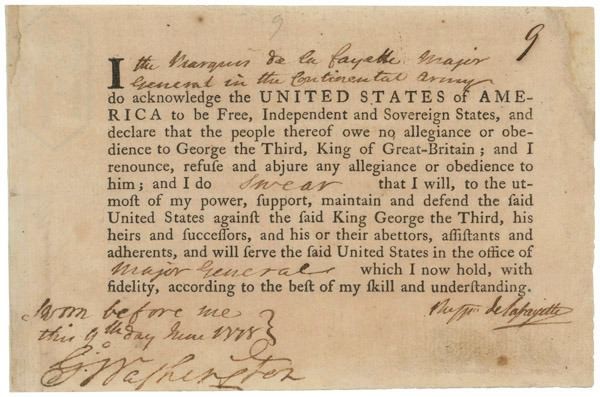 9
9
I the Marquis de la fayette Major
General in the Continental Army
do acknowledge the UNITED STATES of AME-
RICA to be Free, Independent and Sovereign States, and
declare that the people thereof owe no allegiance or obe-
dience to George the Third, King of Great-Britain; and I
renounce, refuſe and abjure any allegiance or obedience to
him; and I do swear that I will, to the ut-
moſt of my power, ſupport, maintain and defend the ſaid
United States againſt the ſaid King George the Third, his
heirs and ſucceſſors, and his or their abettors, aſſiſtants and
adherents, and will ſerve the ſaid United States in the office of
Major General which I now hold, with
fidelity, according to the beſt of my ſkill and underſtanding.
Sworn before me
this 9th day June 1778
de lafayette
Go Washington